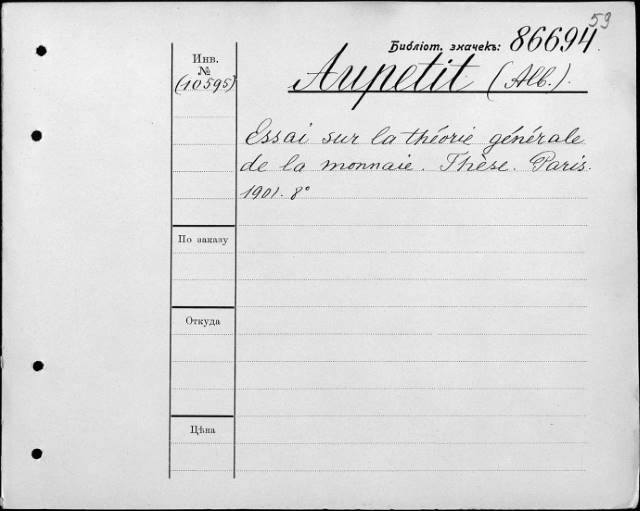 59
Библіот. значекъ: 86694
Инв.
№
(10595)
Aupetit (Alb.).
Essai sur la théorie générale
de la monnaie. Thèse. Paris.
1901. 8°
По заказу
Откуда
Цѣна